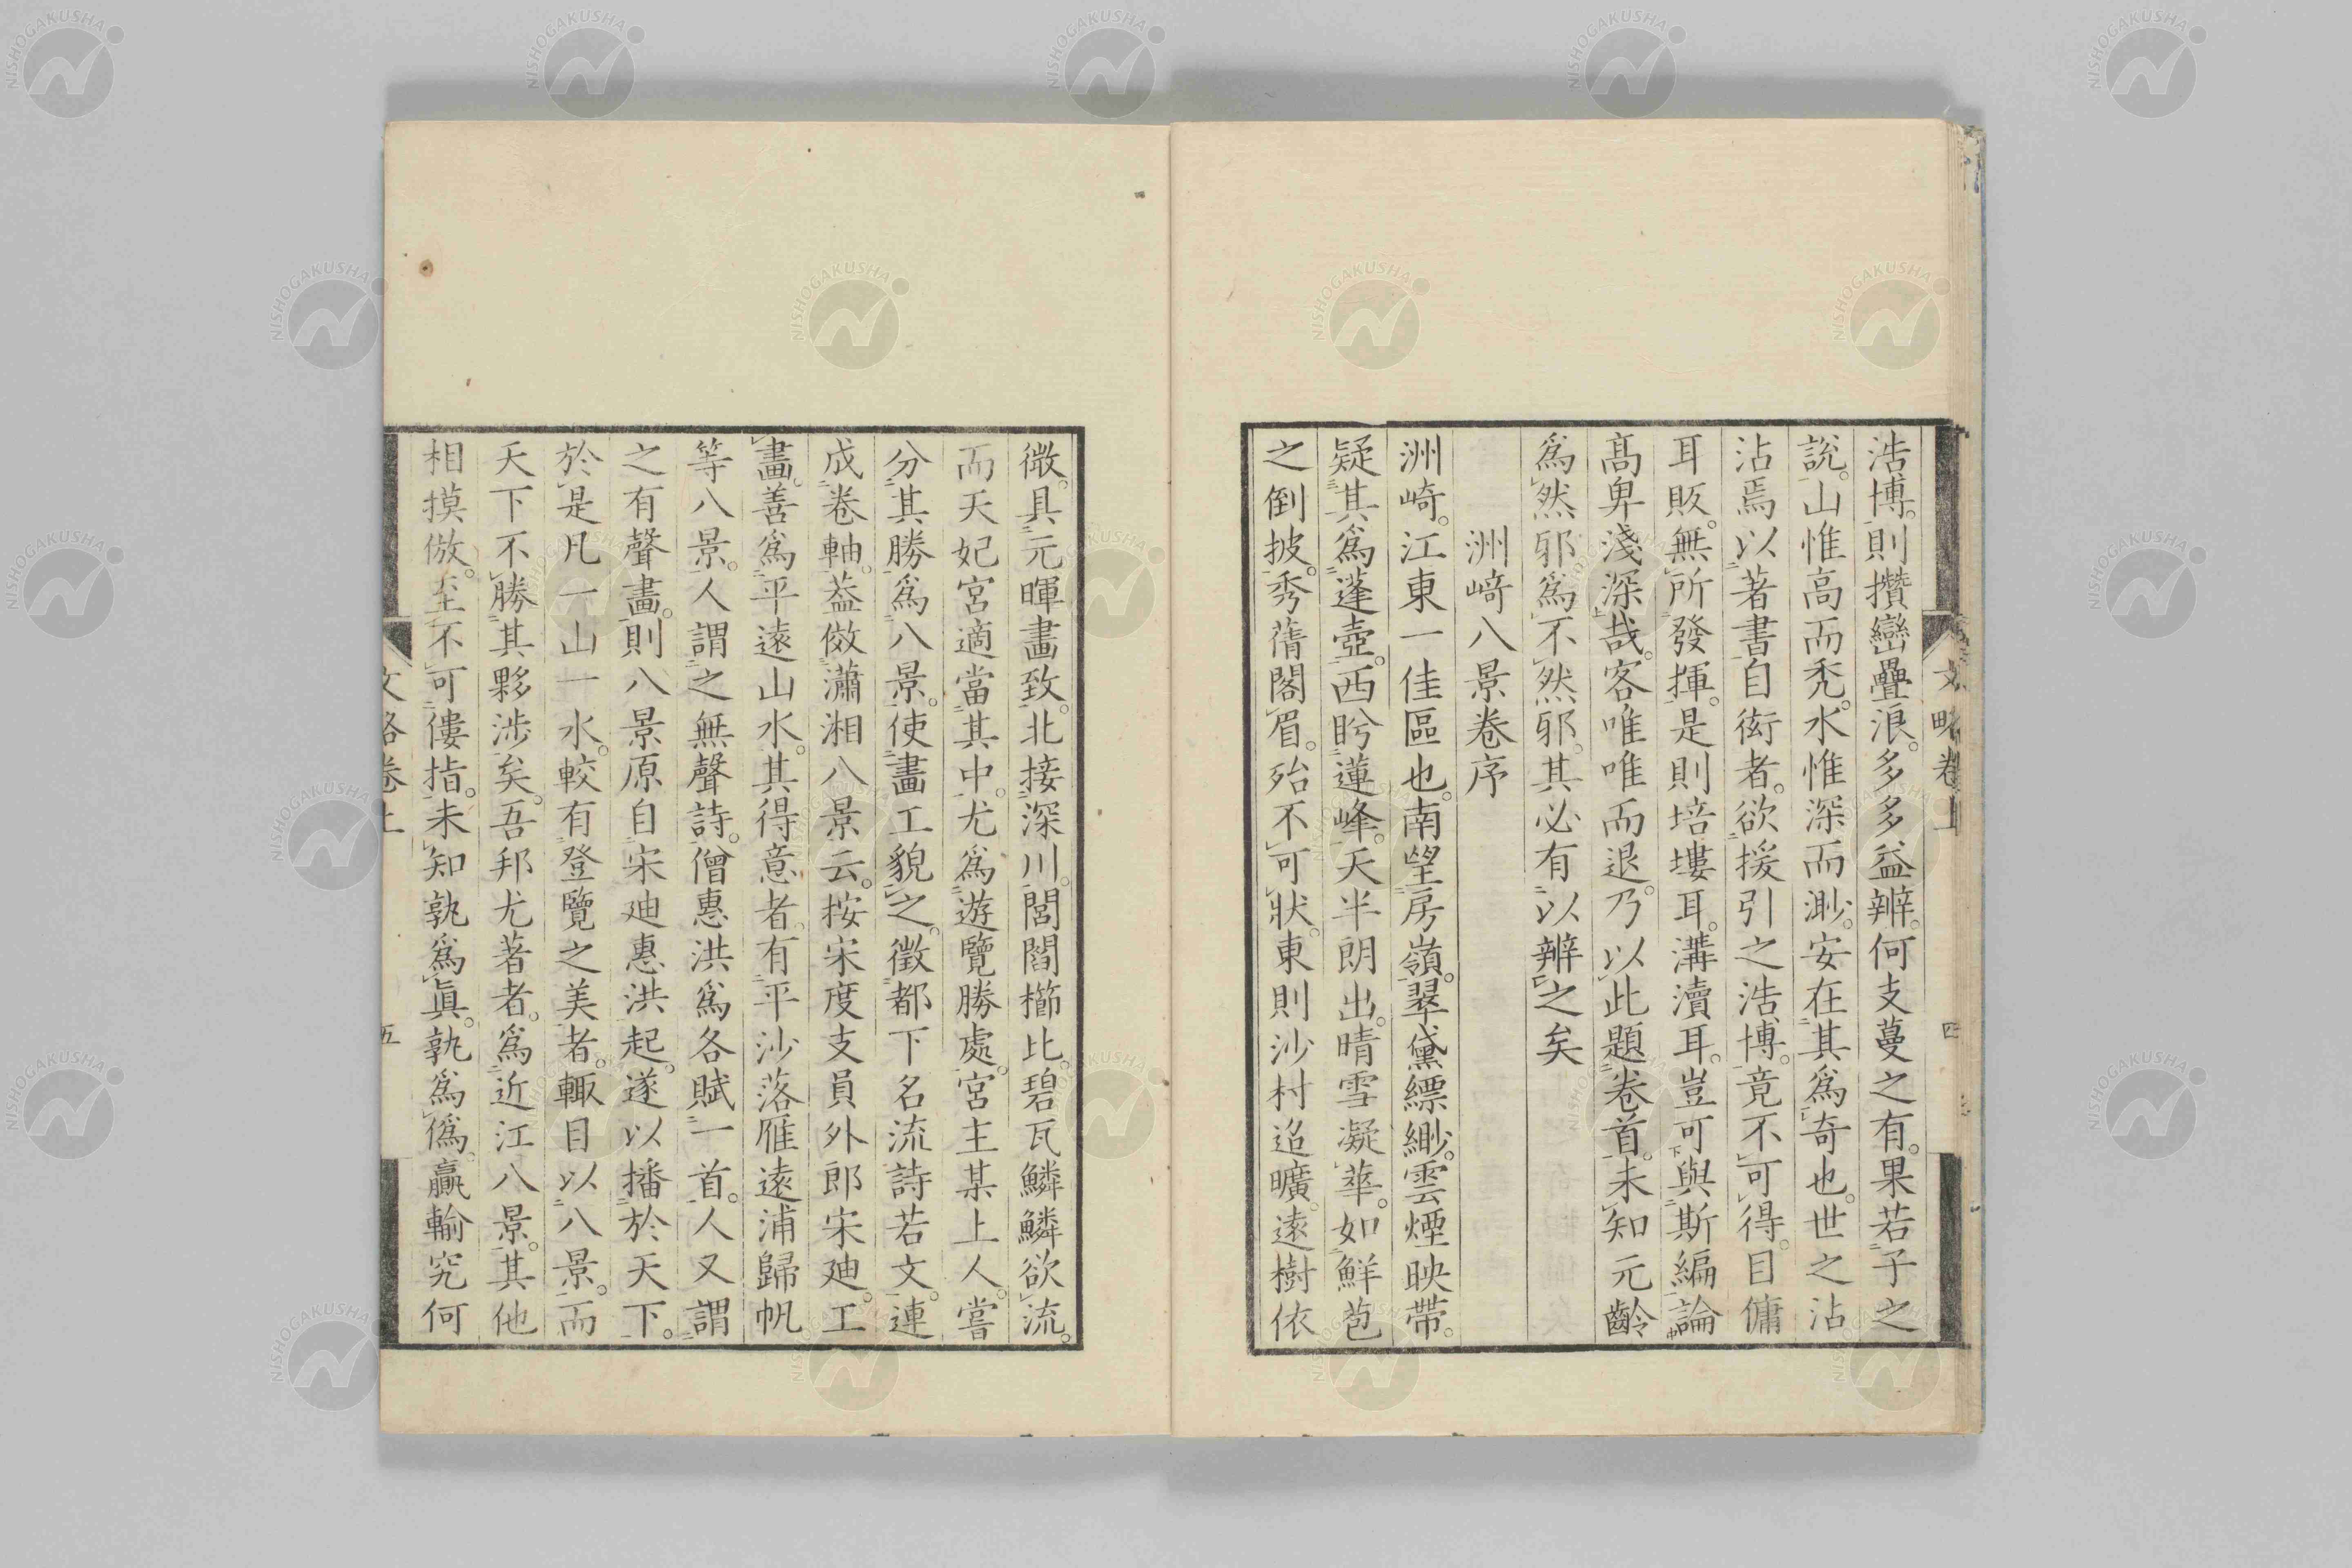 浩博。則攢巒疊浪。多多益辨。何支蔓之有。果若子之
說。山惟高而禿。水惟深而渺。安在其爲奇也。世之沾
沾焉以著書自衒者。欲援引之浩博。竟不可得。目傭
耳販。無所發揮。是則培塿耳。溝瀆耳。豈可與斯編論
高卑淺深哉。客唯唯而退。乃以此題卷首。未知元齡
爲然邪爲不然邪。其必有以辨之矣
洲崎八景卷序
洲崎。江東一佳區也。南望房嶺。翠黛縹緲。雲煙映帶。
疑其爲蓬壺。西盻蓮峰。天半朗出。晴雪凝華。如鮮苞
之倒披。秀蒨閣眉。殆不可狀。東則沙村迢曠。遠樹依
微。具元暉畫致。北接深川。閭閻櫛比。碧瓦鱗鱗欲流。
而天妃宮適當其中。尤爲遊覽勝處。宮主某上人。嘗
分其勝爲八景。使畫工貌之。徵都下名流詩若文。連
成卷軸。葢傚瀟湘八景云。按宋度支員外郎宋迪。工
畫。善爲平遠山水。其得意者。有平沙落雁遠浦歸帆
等八景。人謂之無聲詩。僧惠洪爲各賦一首。人又謂
之有聲畫。則八景原自宋迪惠洪起。遂以播於天下。
於是凡一山一水。較有登覽之美者。輙目以八景。而
天下不勝其夥涉矣。吾邦尤著者。爲近江八景。其他
相摸倣。至不可僂指。未知孰爲眞。孰爲僞。贏輸究何
文略卷上
四
文略卷上
五
NISHOGAKUSHA